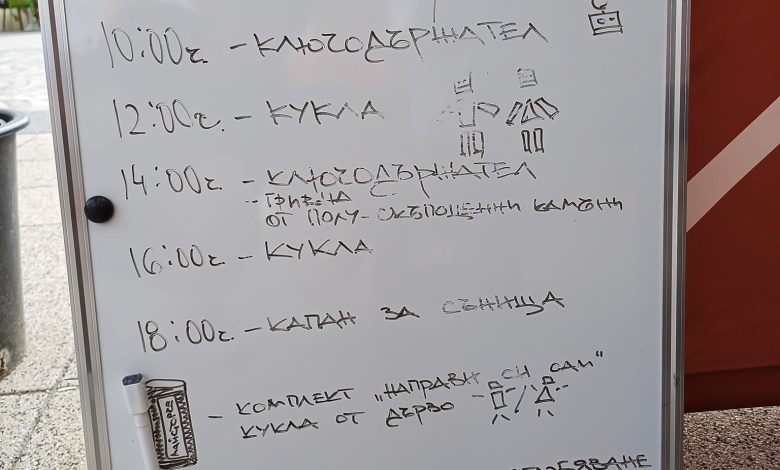 10:00ч. - КЛЮЧОДЪРЖАТЕЛ
12:00ч. - КУКЛА
14:00ч. - КЛЮЧОДЪРЖАТЕЛ
-- ГРИВНА
ОТ ПОЛУ-СКЪПОЦЕННИ КАМЪНИ
16:00ч. - КУКЛА
18:00ч. - КАПАН ЗА СЪНИЩА
- КОМПЛЕКТ „НАПРАВИ СИ САМ“
КУКЛА ОТ ДЪРВО